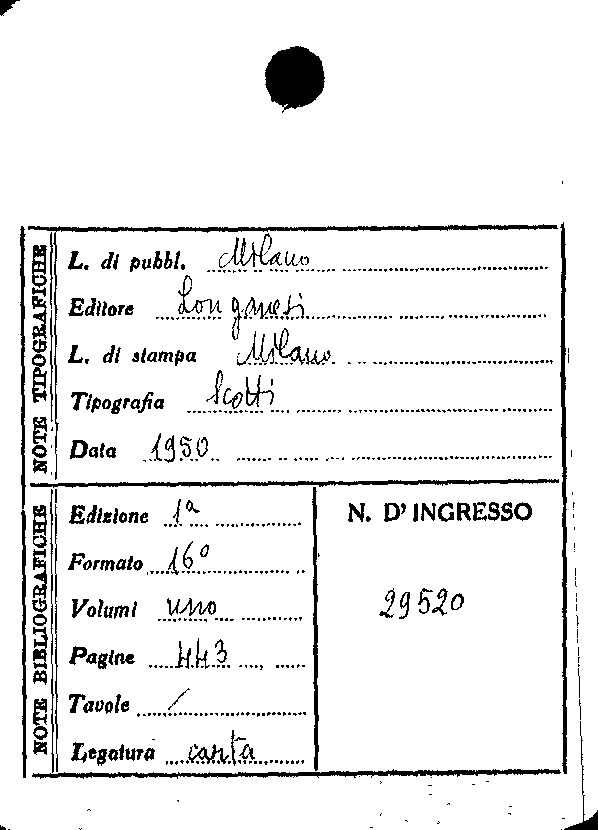 NOTE TIPOGRAFICHE
L. di pubbl. Milano
Editore Longanesi
L. di stampa Milano
Tipografia Scotti
Data 1950
NOTE BIBLIOGRAFICHE
Edizione 1ª
Formato 16°
Volumi uno
Pagine 443
Tavole /
Legatura carta
N. D'INGRESSO
29520